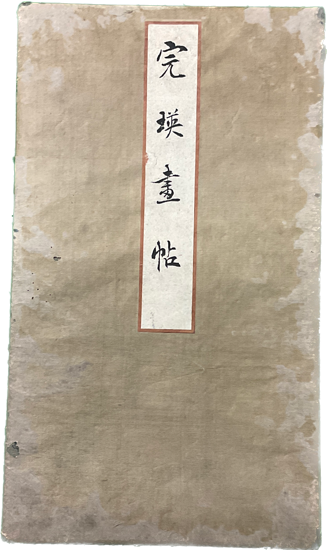 完瑛畫帖